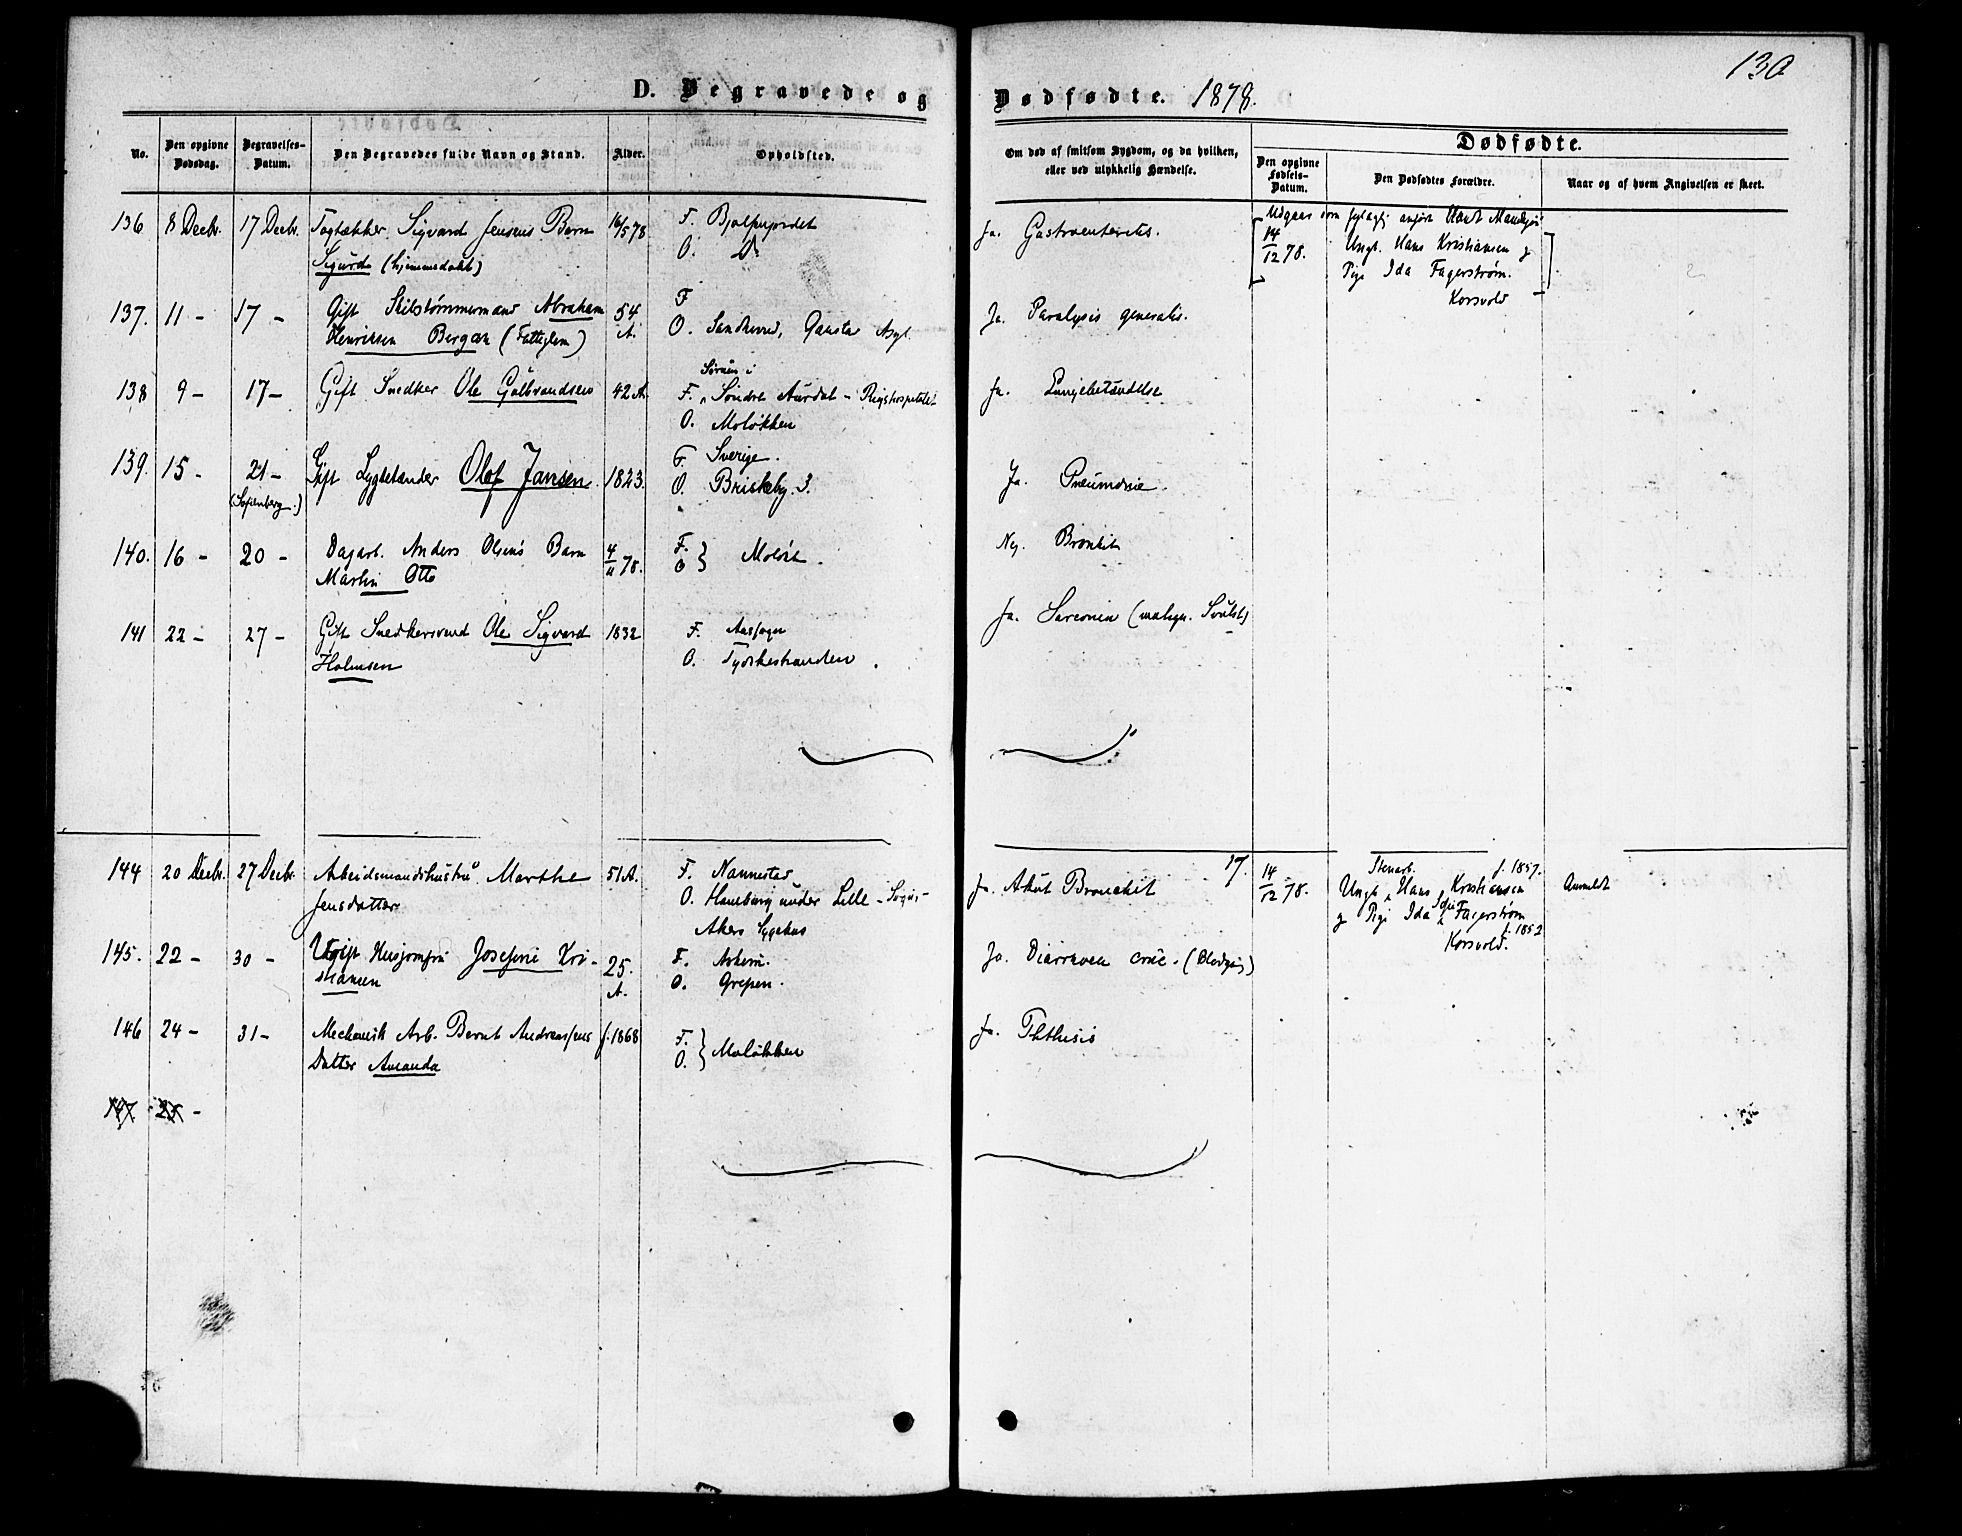 130
D. Begravede og Dødfødte. 1878.
No.
Den opgivne Dødsdag.
Begravelses-Datum.
Den Begravedes fulde Navn og Stand.
Alder.
Opholdsted.
Om død af smitsom Sygdom, og da hvilken, eller ved ulykkelig Hændelse.
Dødfødte.
Den opgivne Fødsels-Datum.
Den Dødfødtes Forældre.
Naar og af hvem Angivelsen er skeet.
136 8 Decbr. 17 Decbr. Tagtækker Sigvard Jensens Barn 16/5 78 F.
Sigurd (hjemmedøbt) O. Do
Ja. Gastroenteritis.
14/12 78. Ungk. Hans Kristiansen g
Pige Ida Fagerström.
Korsvold
137. 11 - 17 - Gift Skibstømmermand Abraham 54 A. F
Henriksen Bergan (Fattiglem) O. Sandherred, Gausta Asyl.
Ja. Paralysis generalis.
138 9 - 17 - Gift Snedker Ole Gulbrandsen 42 A. F. Søndre Aurdal - Rigshospitalet
O. Moløkken
Ja. Lungebetændelse
139. 15 - 21 - Gift Lygtetænder Olof Jansen. 1823. F. Sverige.
(Sofienberg.) O. Briskeby. 3.
Ja. Pneumonie.
140. 16 - 20 - Dagarb. Anders Olsens Barn 4/11 78. F.
Martin Otto O } Moløk.
Nej. Bronkit
141 22 - 27 - Gift Snedkersvend Ole Sigvard 1832 F. Aassogn
Holmsen O. Tyskestranden.
Ja. Sarcomia (malign. Svulst)
144 20 Decbr. 27 Decbr. Arbeidsmandshustru Marthe 51 A. F. Nannestad
Jensdatter O. Hamburg under Lille - Sogn -
Akers Sygehus
Ja. Akut Bronchit
17. 14/12 78. Stenarb. f. 1857.
Ungk. Hans Kristiansen Anmeldt
g Pige Ida Fagerstrøm
f. 1852
Korsvold.
145. 22 - 30 - Ugift Husjomfru Josefine Kri- 25. A. F. Askim.
stiansen O. Grefsen.
Ja. Diarrhoea cruc. (Blodgang)
146 24 - 31 - Mechanisk Arb. Bernt Andreassens f. 1868 F.
Datter Amanda O. } Moløkken
Ja. Phthisis
147. 25 -